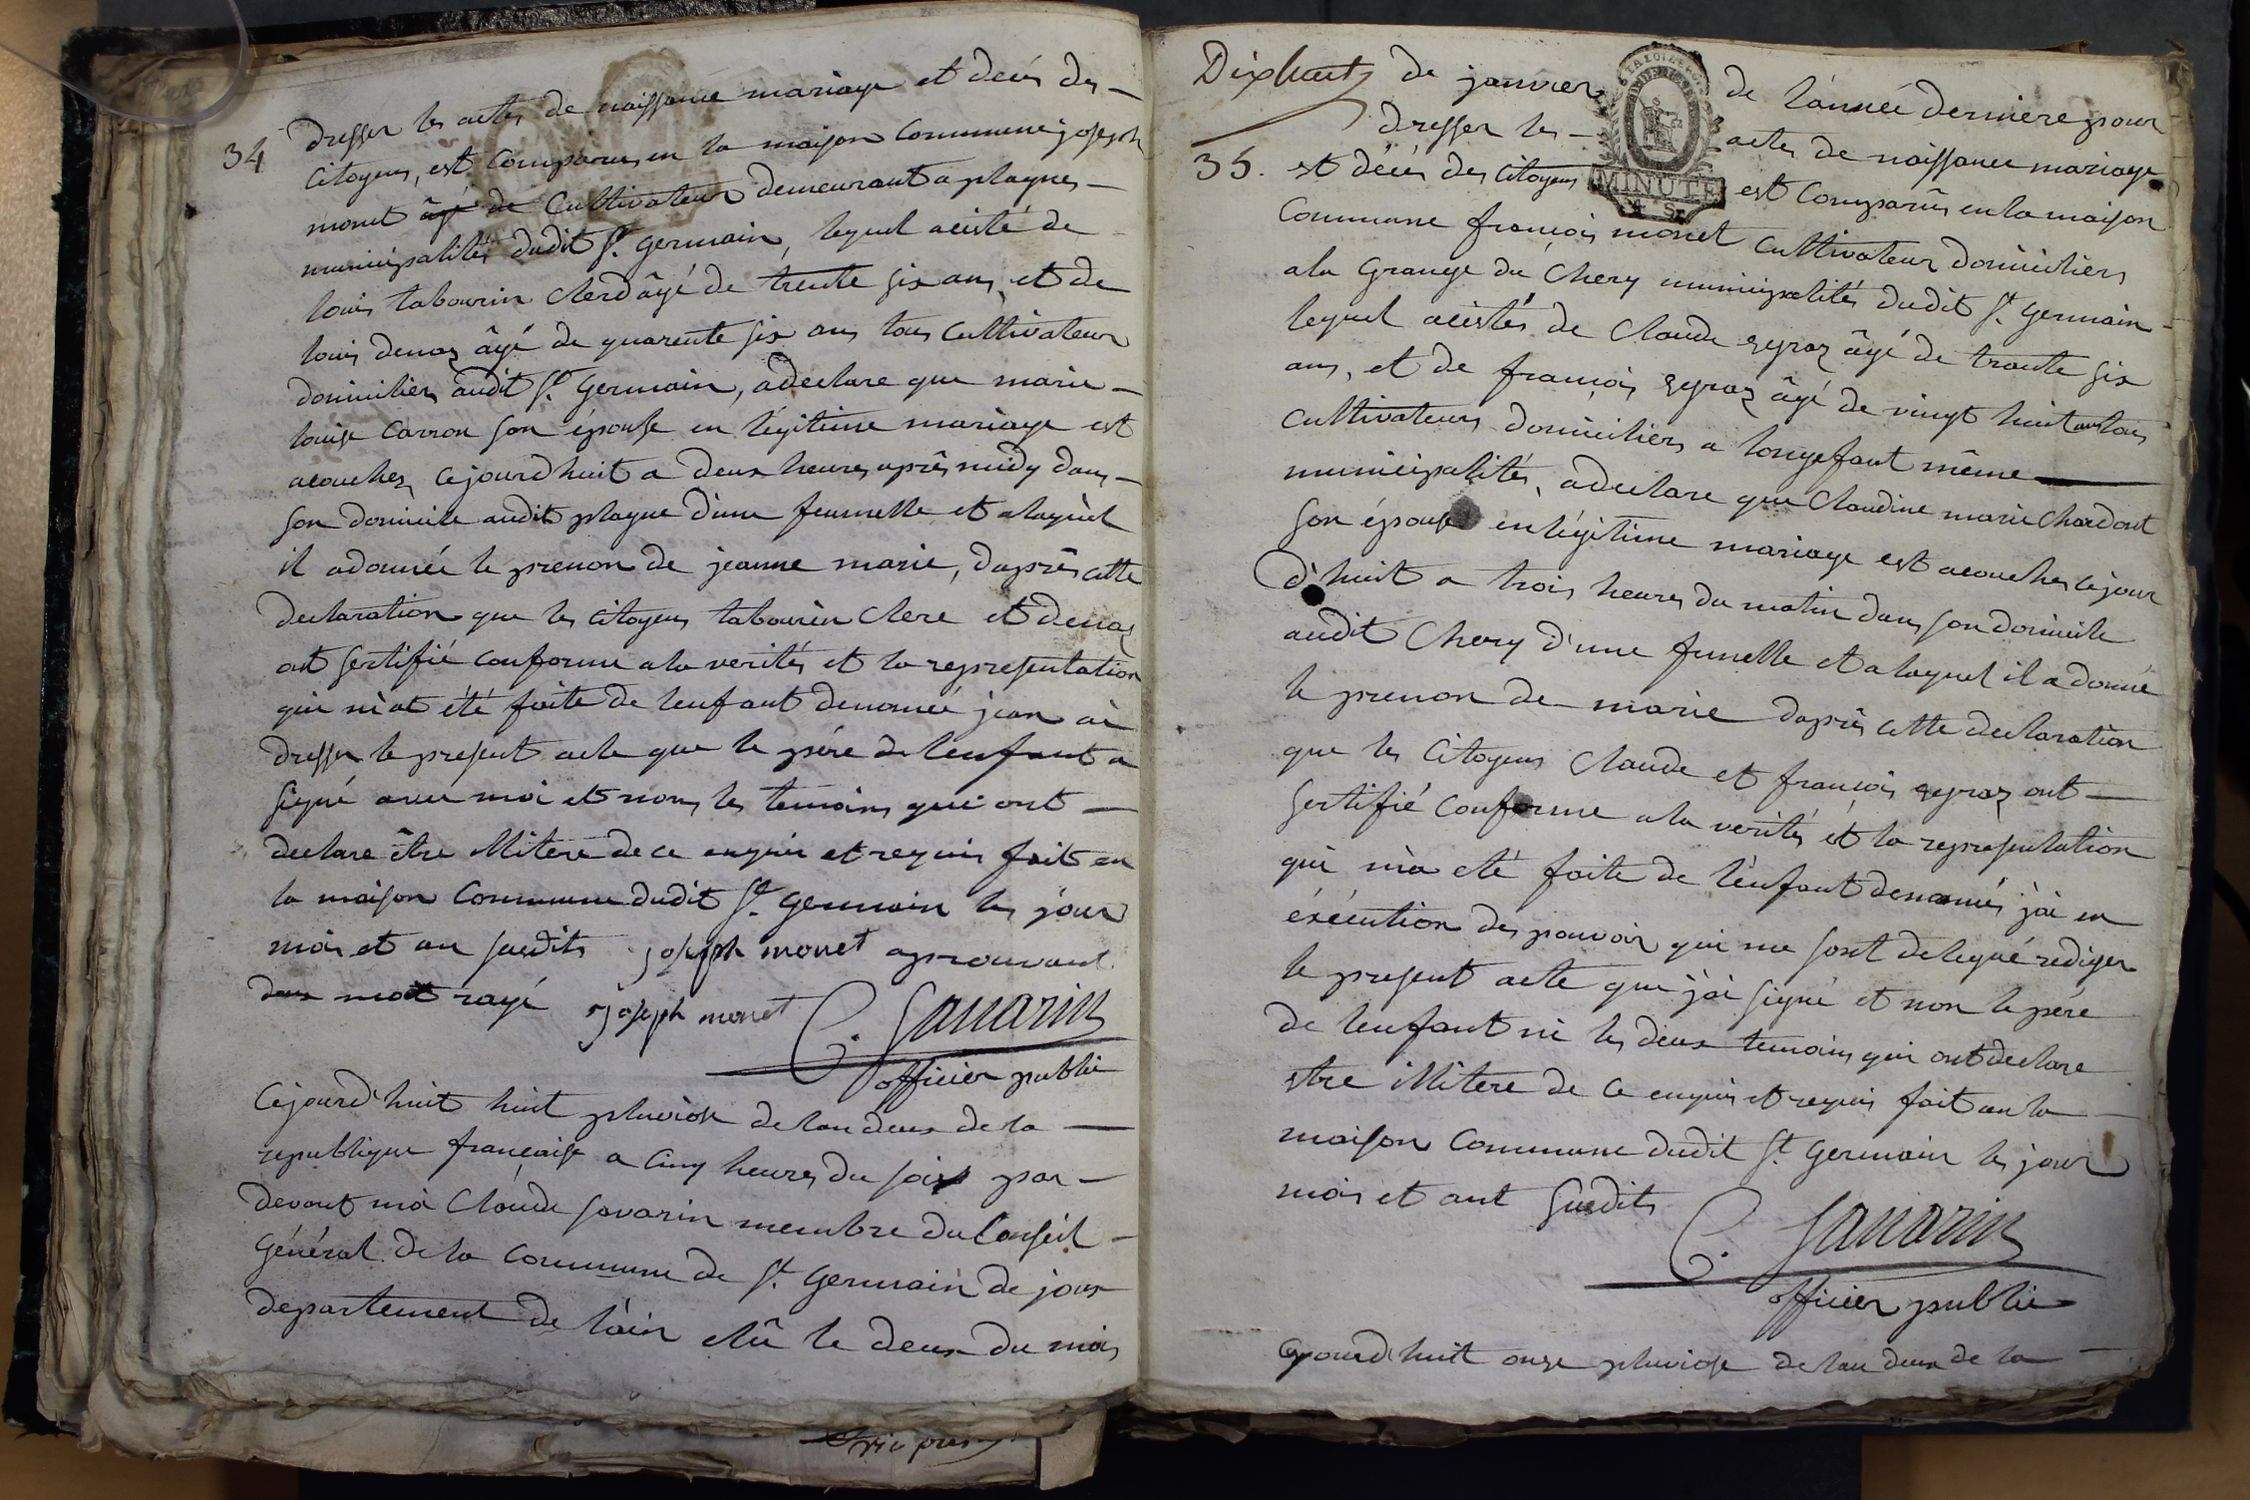 34
dresser les actes de naissance mariage et decés des —
citoyens, est comparus en la maison commune joseph
monet âgé de cultivateur demeurant a plagnes —
municipalités dudit St. germain, lequel acisté de
louis tabourin clerc âgé de trente six ans, et de
louis denaz âgé de quarente six ans tous cultivateur
domiciliers audit St. germain, a declare que marie —
louise carron son épouse en légitime mariage est
acouchez cejourdhuit a deux heures après midy dans —
son domicile audit plagne d'une femmelle et a laquel
il a donnée le prenon de jeanne marie, d'après cette
declaration que les citoyens tabourin clerc et denaz
ont sertifié conforme a la verités et la representation
qui m'at été faite de lenfant denomée jean ai
dresser le present acte que le père de lenfant a
signé avec moi et non les temoins qui ont —
declare être illitere de ce enquis et requis fait en
la maison commune dudit St. germain les jour
mois et an susdits joseph monet aprouvant
deux mot rayé joseph monet
C. Savarin
officier public
Cejourd'huit huit pluviose de lan deux de la —
republique française a cinq heures du soir par —
devant moi Claude Savarin membre du Conseil —
Général de la commune de St. Germain de joux
departement de l'ain élû le deux du mois
Dixhuit de janvier de l'année derniere pour
dresser les — actes de naissance mariage
MINUTE
4 S.
35. et décés des citoyens est comparûs en la maison
commune françois monet cultivateur domiciliers
a la Grange du Chery municipalités dudit St. germain
lequel acistés de Claude eyraz âgé de trante six
ans, et de françois eyraz âgé de vingt huit ans tous
cultivateurs domiciliers a longefant même —
municipalités, a declare que Claudine marie Chardont
son épouse en légitime mariage est acouchez cejour
d'huit a trois heures du matin dans son domicile
audit Chery d'une fumelle et a laquel il a donné
le prenon de marie d'après cette declaration
que les citoyens Claude et françois eyraz ont —
sertifié conforme a la verités et la representation
qui m'a été faite de l'enfant denomés j'ai en
éxécution des pouvoir qui me sont delegué rediger
le present acte que j'ai signé et non le père
de lenfant ni les deux temoins qui ont declare
être illitere de ce enquis et requis fait en la —
maison commune dudit St. germain les jour
mois et ant susdits
C. Savarin
officier public
Cejourd'huit onze pluviose de lan deux de la —